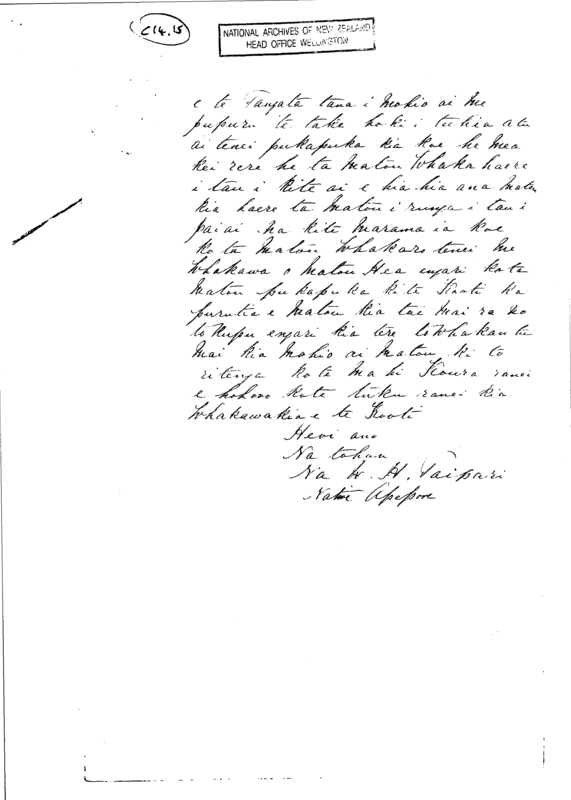 C14.15
NATIONAL ARCHIVES OF NEW ZEALAND
HEAD OFFICE WELLINGTON
e te Tangata tana i Mohio ai Me
pupuru te take hoki i tuhia atu
ai tenei pukapuka kia koe he mea
kei rere he ta Matou Whakahaere
i tau i kite ai e hiahia ana Matou
kia haere ta Matou i runga i tau i
pai ai na kite Marama ia koe
ko ta Matou Whakaro tenei Me
Whakawa o Matou Hea engari ko ta
Matou pukapuka ki te Kooti ka
purutia e Matou kia tae Mai ra ko
to kupu engari kia tere to Whakautu
Mai kia Mohio ai Matou ki to
ritenga ko te Mahi Koura ranei
e hohoro ko te tuku ranei kia
Whakawakia e te Kooti
Heoi ano
Na to hoa
Na W. H. Taipari
Native